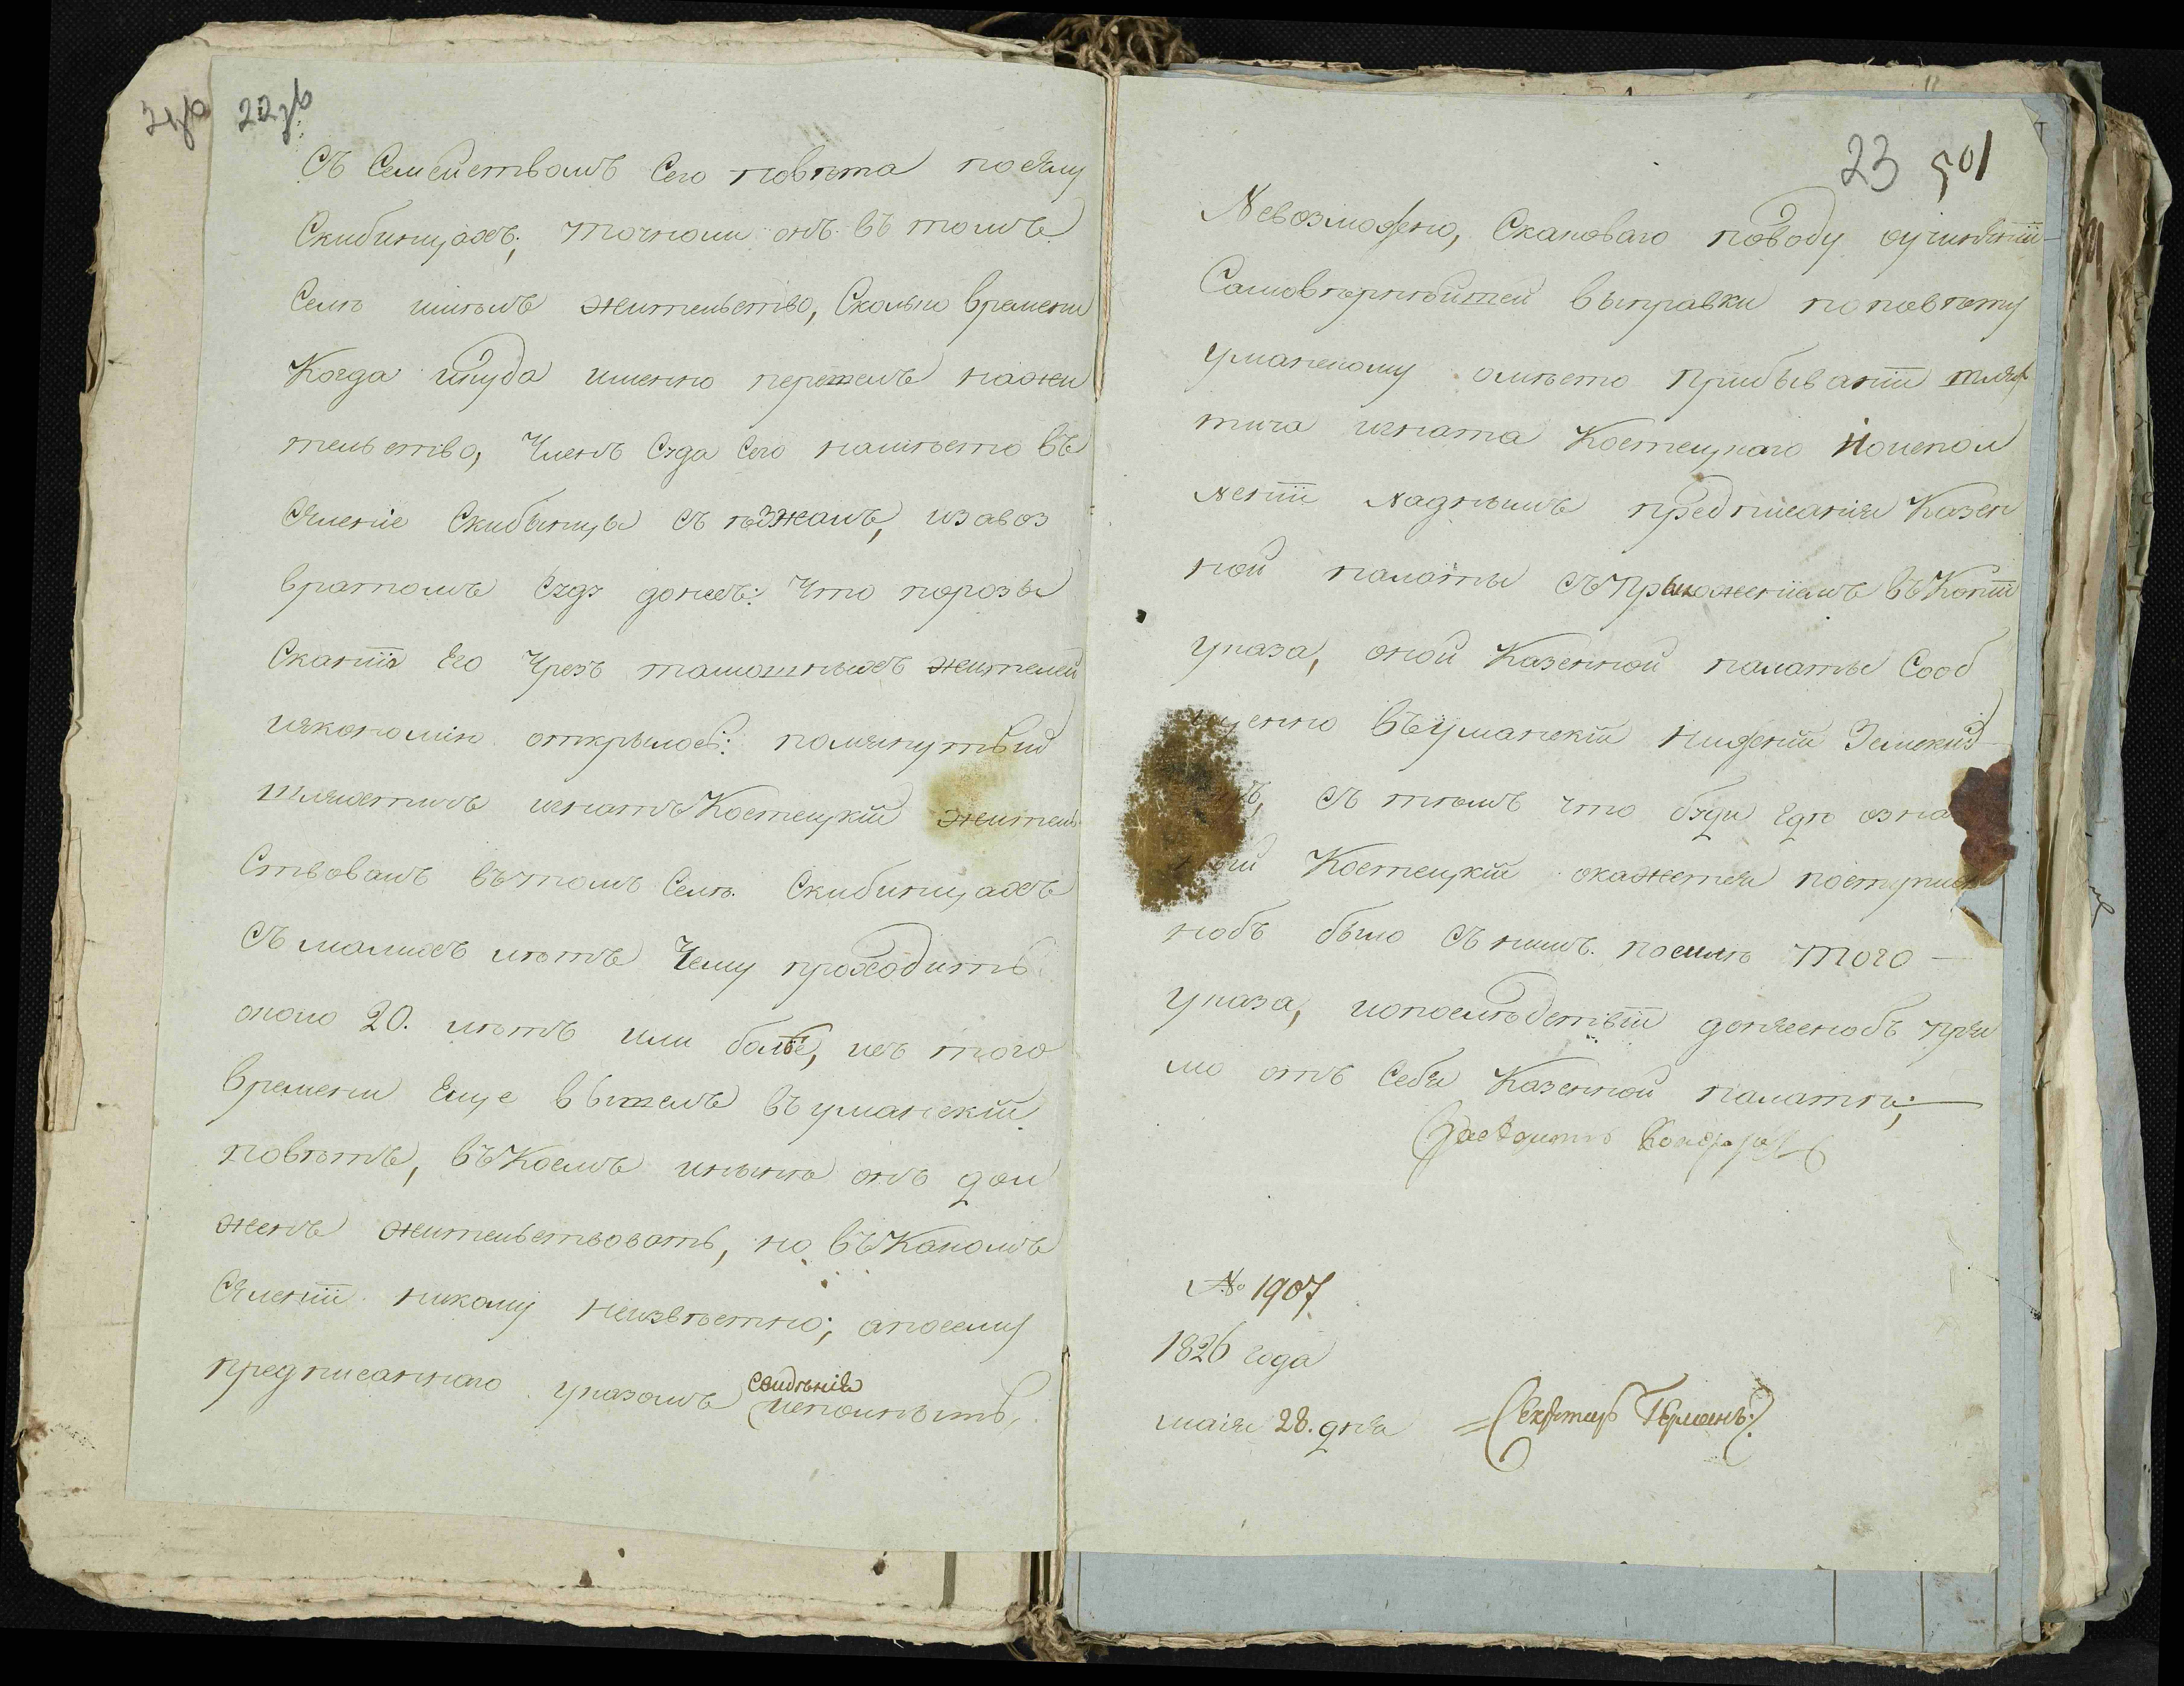 22зв
съ Семействомъ Сего повѣта по селу
Скибинцахъ, точноли онъ въ томъ
Селѣ имѣлъ жительство, Сколько времени
Когда икуда именно перешелъ нажи
тельство, Членъ Суда Сего намѣсто въ
Селеніе Скибинцы съ езжалъ, изавоз
вратомъ Суду донесъ: Что порозы
Сканіи Его Чрезъ тамошныхъ жителей
иякономію открылось: помянутый
шляхтичъ игнатъ Костецкій житель
Ствовалъ вътомъ Селѣ Скибинцахъ
Съ малихъ лѣтъ Чему проходитъ
около 20. лѣтъ илиболѣе, исъ того
времени Еще вышелъ въуманскій
повѣтъ, въКоемъ инынѣ онъ дол
женъ жительствовать, но въКакомъ
Селеніи никому неизвѣстно; апосему
предписанного указомъ свиденія исполнить,
23 501
Невозможно, Скаковаго поводу оучиненіи
Самовѣрнѣйшей выправки поповѣту
уманскому омѣсто прибываніи шлях
тича игната Костецкаго Ноиспол
неніи надлѣжащемъ предписанія Казен
ной палаты съПриложеніемъ въКопіи
указа, оной Казенной палаты Сооб
щенно въУманскій нижній Земский
съ тѣмъ что буди гдѣ озна
Костецкій окажется поступлен
нобъ было съ нимъ. посилѣ того
указа, ипослѣдствіи донесенобъ пря
мо отъ Себя Казенной палатѣ;
№ 1907
1826 года
маія 28. дня
Секретарь Германъ